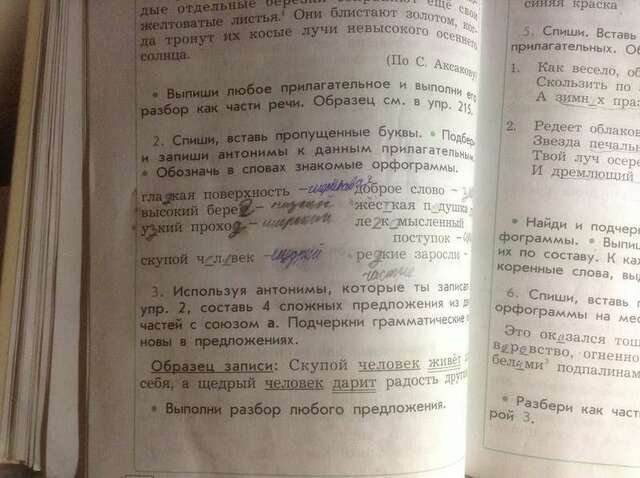 дые отдельные березки сохраняют ещё свои
желтоватые листья.⁴ Они блистают золотом, ког-
да тронут их косые лучи невысокого осеннего
солнца.
(По С. Аксакову)
• Выпиши любое прилагательное и выполни его
разбор как части речи. Образец см. в упр. 215.
2. Спиши, вставь пропущенные буквы. • Подбери
и запиши антонимы к данным прилагательным.
• Обозначь в словах знакомые орфограммы.
гладкая поверхность – доброе слово –
высокий берег – низкий жёсткая подушка –
узкий проход – широкий легкомысленный
поступок –
скупой человек – щедрый редкие заросли –
частые
3. Используя антонимы, которые ты записал
упр. 2, составь 4 сложных предложения из
частей с союзом а. Подчеркни грамматические
новы в предложениях.
Образец записи: Скупой человек живёт
себя, а щедрый человек дарит радость
• Выполни разбор любого предложения.
синяя краска
5. Спиши. Вставь
прилагательных.
1. Как весело,
Скользить по
А зимних
2. Редеет
Звезда
Твой луч
И дремлющий
• Найди и
фограммы. •
их по составу. К
коренные слова,
6. Спиши, вставь
орфограммы на
Это оказался
веровство,
белыми³ подпалинам
• Разбери как
рой 3.